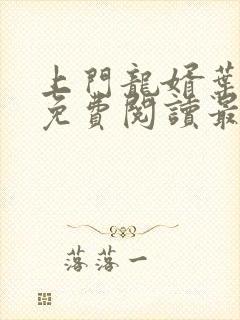 上門龍婿葉
免費閱讀最
落落一